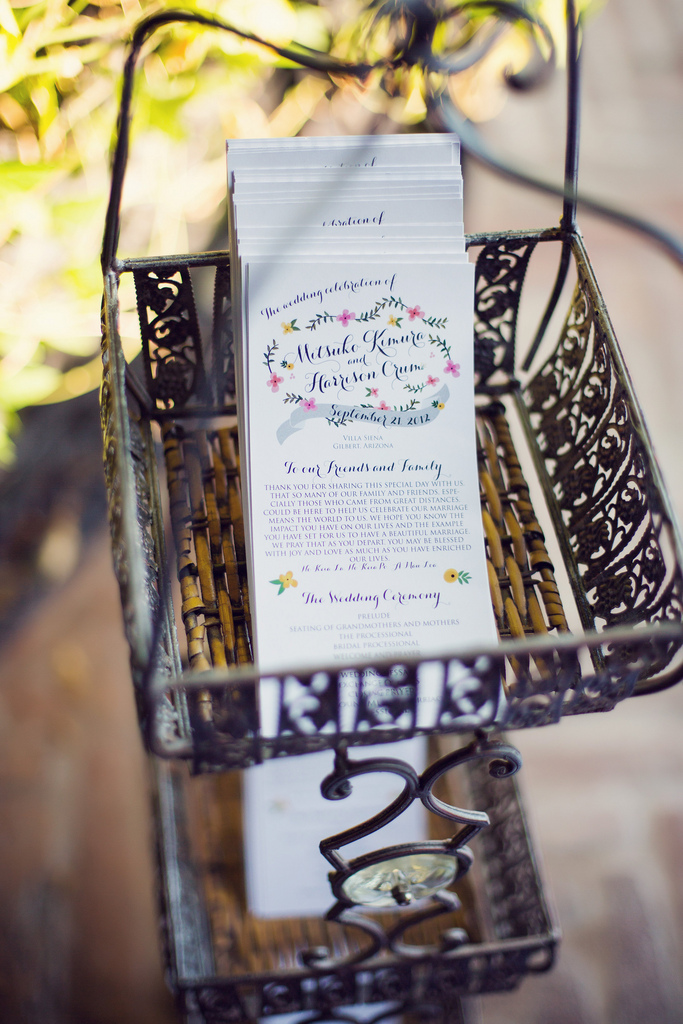 The wedding celebration of
Mitsuko Kimura
and
Harrison Crum
September 21, 2012
VILLA SIENA
GILBERT, ARIZONA
To our Friends and Family
THANK YOU FOR SHARING THIS SPECIAL DAY WITH US
THAT SO MANY OF OUR FAMILY AND FRIENDS, ESPE-
CIALLY THOSE WHO CAME FROM GREAT DISTANCES,
COULD BE HERE TO HELP US CELEBRATE OUR MARRIAGE
MEANS THE WORLD TO US. WE HOPE YOU KNOW THE
IMPACT YOU HAVE ON OUR LIVES AND THE EXAMPLE
YOU HAVE SET FOR US TO HAVE A BEAUTIFUL MARRIAGE.
WE PRAY THAT AS YOU DEPART, YOU MAY BE BLESSED
WITH JOY AND LOVE AS MUCH AS YOU HAVE ENRICHED
OUR LIVES.
The Wedding Ceremony
PRELUDE
SEATING OF GRANDMOTHERS AND MOTHERS
THE PROCESSIONAL
BRIDAL PROCESSIONAL
WELCOME AND PRAYER